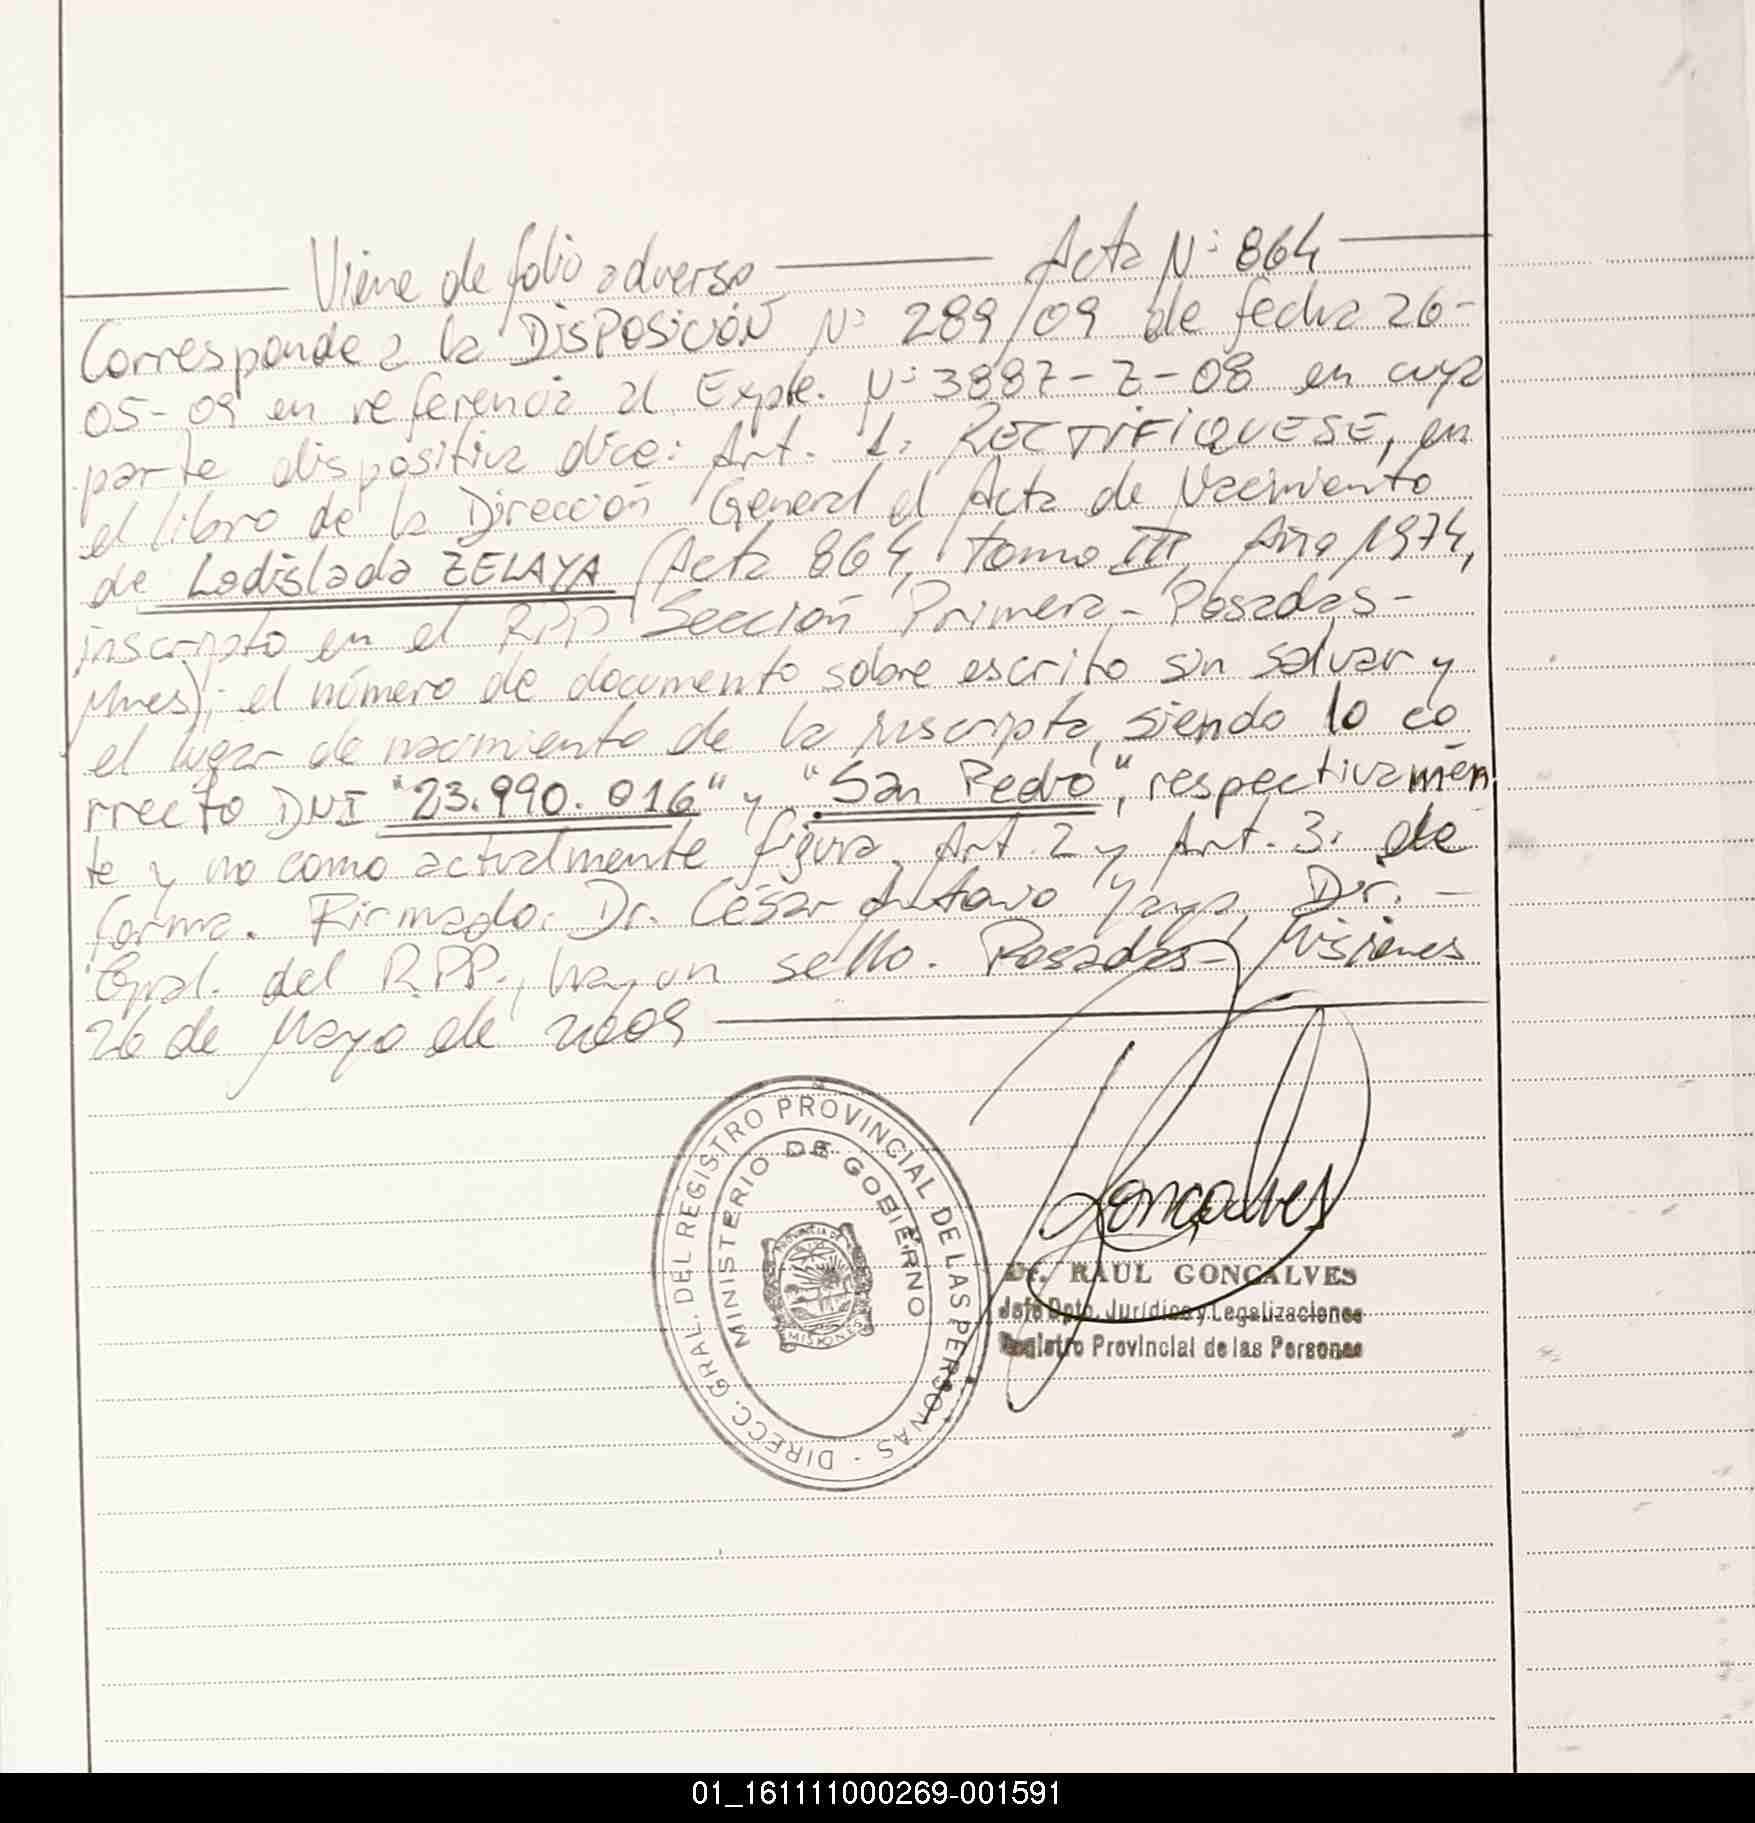 Viene de folio adverso Acta Nº 864
Corresponde a la DISPOSICIÓN Nº 289/09 de fecha 26-
05-09 en referencia al Expte. Nº 3887-Z-08 en cuya
parte dispositiva dice: Art. 1: RECTIFIQUESE, en
el libro de la Dirección General el Acta de Nacimiento
de Ladislada ZELAYA (Acta 864, tomo III, Año 1974,
inscripto en el RPP Sección Primera - Posadas -
Mnes); el número de documento sobre escrito sin salvar y
el lugar de nacimiento de la inscripta, siendo lo co
rrecto DNI "23.990.016" y "San Pedro", respectivamen
te y no como actualmente figura. Art. 2 y Art. 3: de
forma. Firmado: Dr. César Antonio Yaya, Dir. -
Gral. del R.P.P., hay un sello. Posadas - Misiones
26 de Mayo de 2009
DIRECC. GRAL. DEL REGISTRO PROVINCIAL DE LAS PERSONAS
MINISTERIO DE GOBIERNO
PROVINCIA DE
MISIONES
Goncalves
Dr. RAUL GONCALVES
Jefe Dpto. Jurídico y Legalizaciones
Registro Provincial de las Personas
01_161111000269-001591